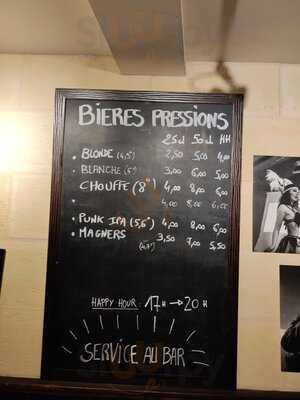 BIERES PRESSIONS
25cl 50cl HH
• BLONDE (4,5) 2,50 5,00 4,00
• BLANCHE (5°) 3,00 6,00 5,00
CHOUFFE (8°) 4,00 8,00 6,00
• 4,00 8,00 6,00
• PUNK IPA (5,6°) 4,00 8,00 6,00
• MAGNERS 3,50 7,00 5,50
HAPPY HOUR: 17H → 20H
SERVICE AU BAR